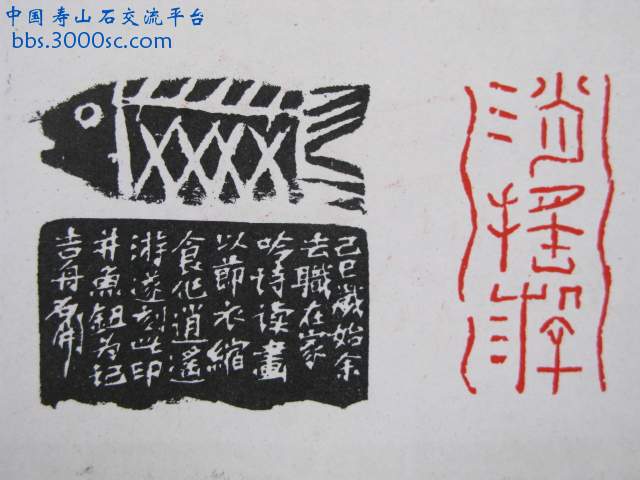 中国寿山石交流平台
bbs.3000sc.com
消摇游
己巳歲始余
去職在家
吟诗读畫
以節衣縮
食作逍遙
游遂刻此印
并魚鈕为记
吉舟石開